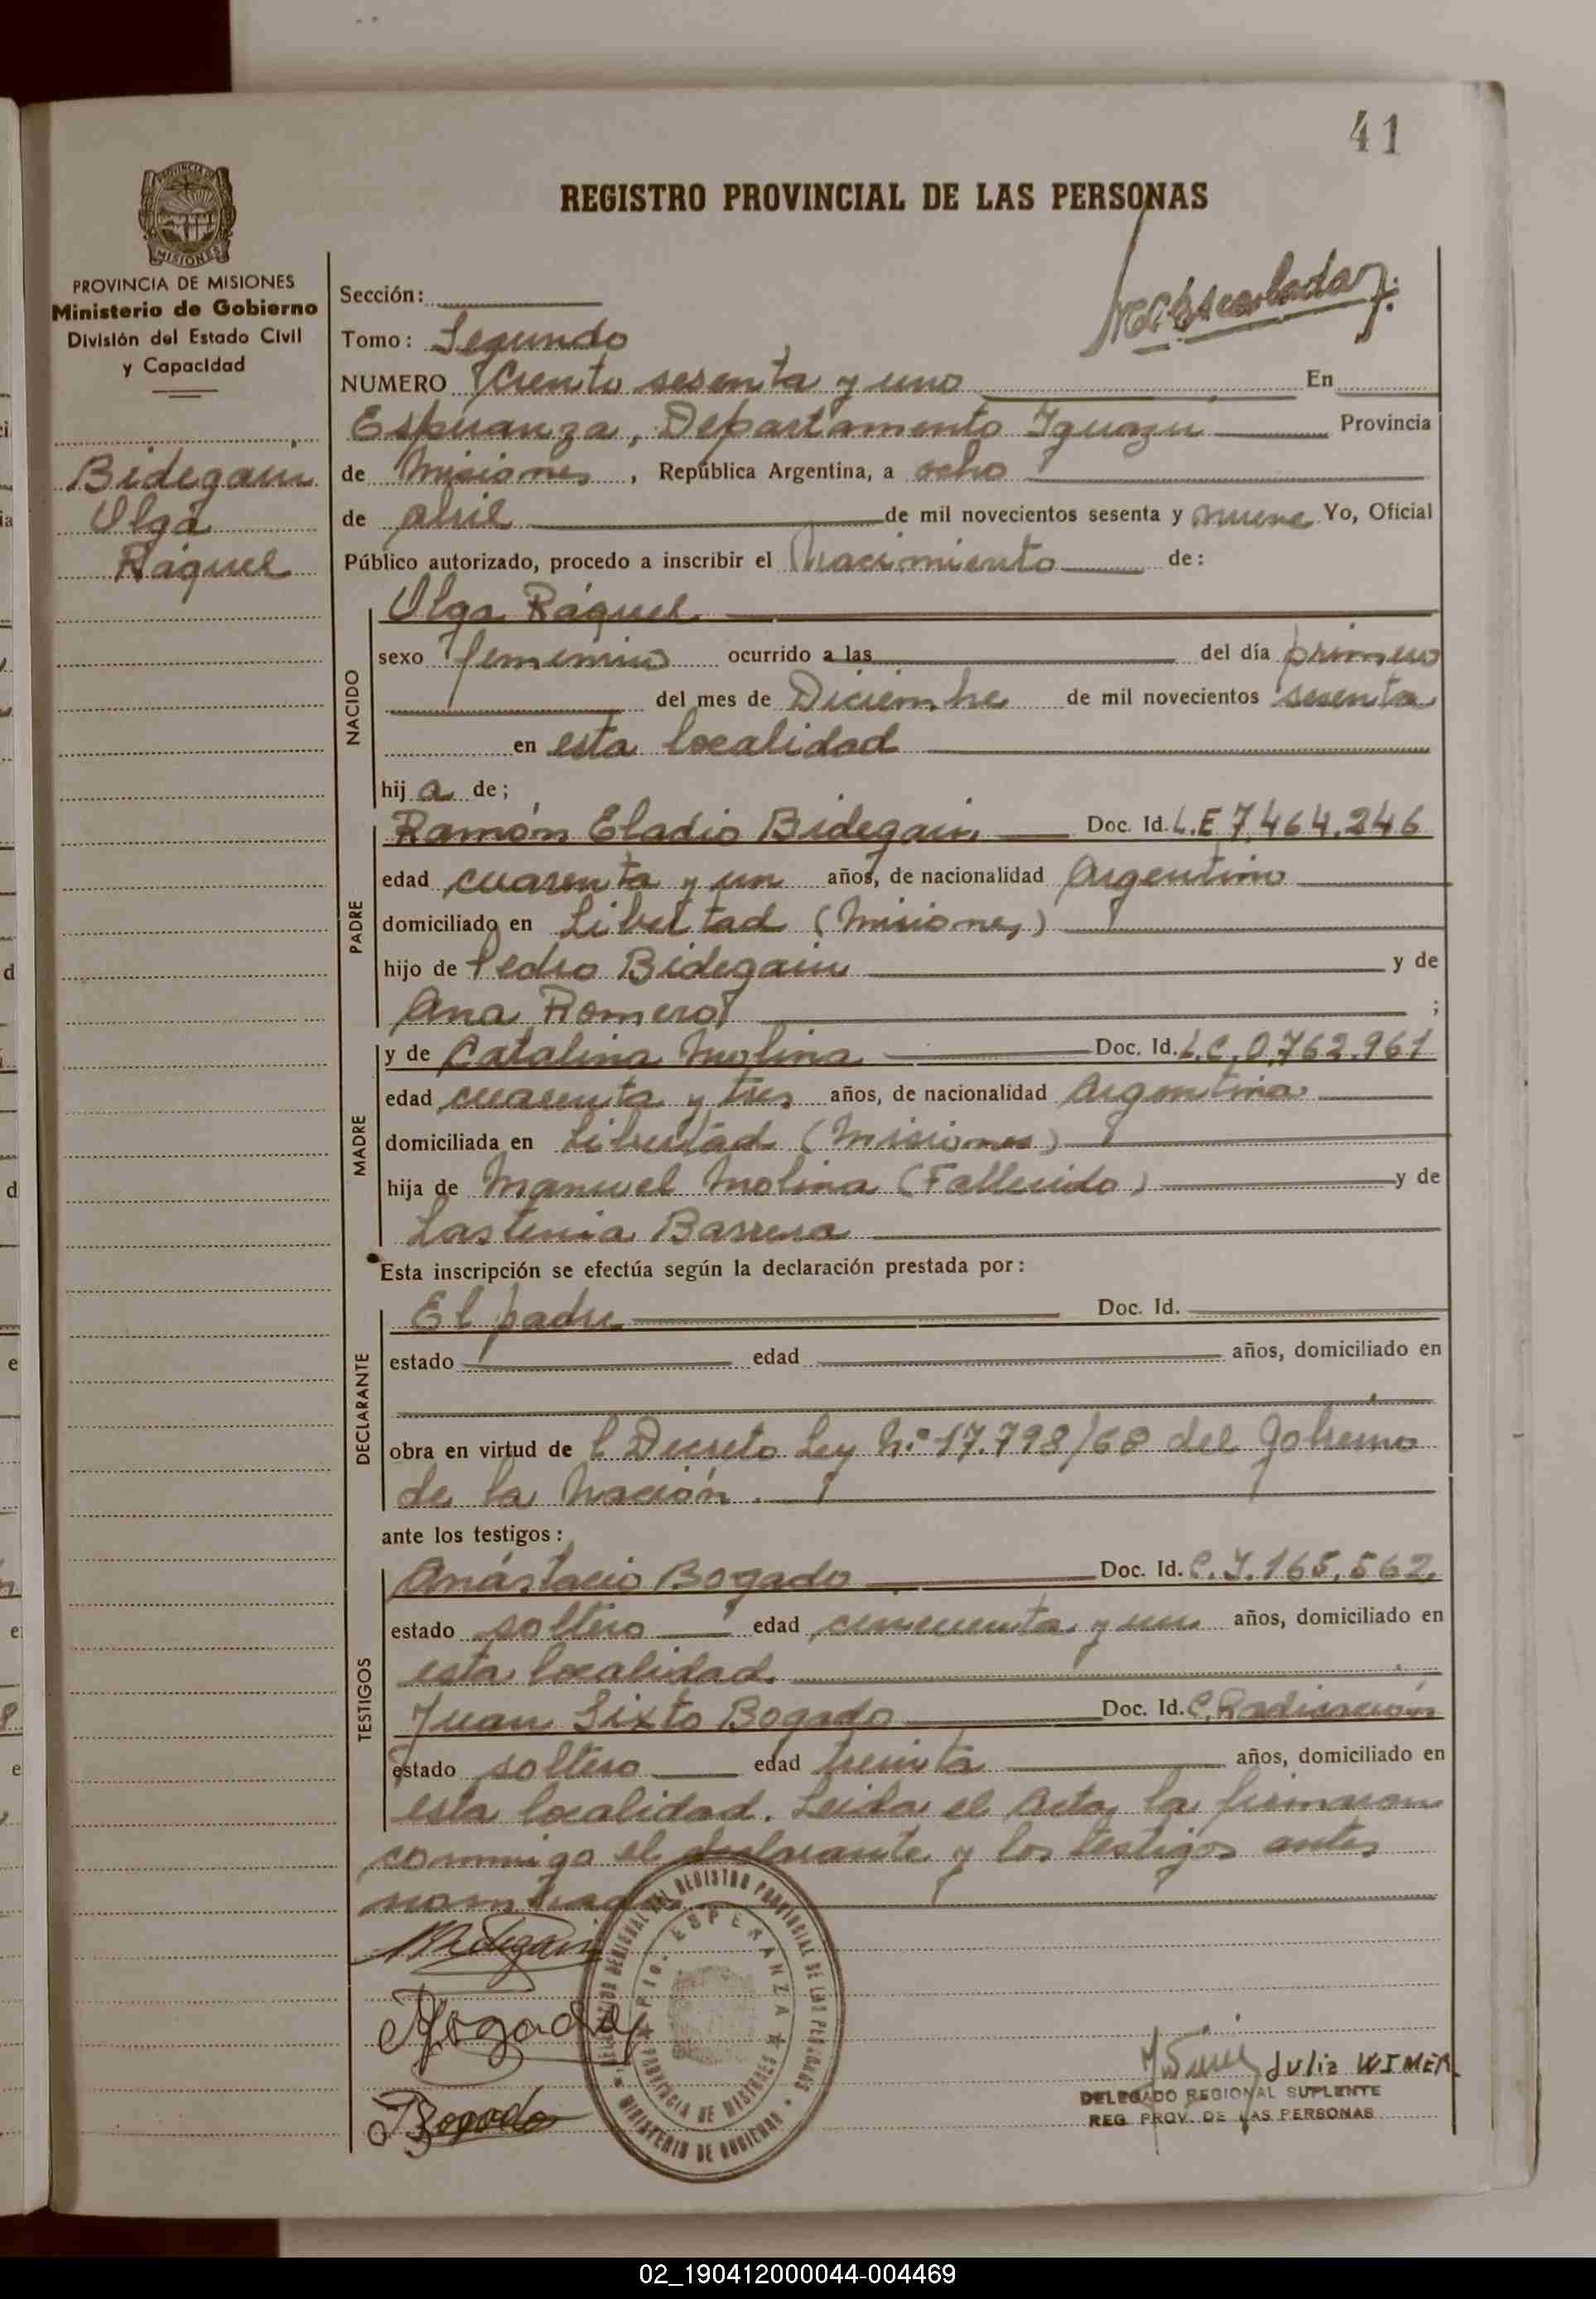 41
REGISTRO PROVINCIAL DE LAS PERSONAS
PROVINCIA DE
MISIONES
PROVINCIA DE MISIONES
Ministerio de Gobierno
División del Estado Civil
y Capacidad
Bidegain
Olga
Ráquel
Sección:
Tomo: Segundo
NUMERO Ciento sesenta y uno En
Esperanza, Departamento Iguazu Provincia
de Misiones, República Argentina, a ocho
de abril de mil novecientos sesenta y nueve Yo, Oficial
Público autorizado, procedo a inscribir el Nacimiento de:
NACIDO
Olga Ráquel
sexo femenino ocurrido a las del día primero
del mes de Diciembre de mil novecientos sesenta
en esta localidad
hij a de;
PADRE
Ramón Eladio Bidegain Doc. Id. L.E 7.464.246
edad cuarenta y un años, de nacionalidad Argentino
domiciliado en Libertad (Misiones)
hijo de Pedro Bidegain y de
Ana Romero ;
MADRE
y de Catalina Molina Doc. Id. L.C. 0.762.961
edad cuarenta y tres años, de nacionalidad Argentina
domiciliada en Libertad (Misiones)
hija de Manuel Molina (Fallecido) y de
Lastenia Barrera
Esta inscripción se efectúa según la declaración prestada por:
DECLARANTE
El padre Doc. Id.
estado edad años, domiciliado en
obra en virtud de l Decreto Ley N.º 17.798/68 del Gobierno
de la Nación.
ante los testigos:
TESTIGOS
Anástacio Bogado Doc. Id. C.I. 165.562.
estado soltero edad cincuenta y un años, domiciliado en
esta localidad.
Juan Sixto Bogado Doc. Id. C. Radicación
estado soltero edad treinta años, domiciliado en
esta localidad. Leida el Acta, la firmaron
conmigo el declarante y los testigos antes
nombrados
Bidegain
Bogado
Bogado
REGIONAL DEL REGISTRO PROVINCIAL DE LAS PERSONAS
MINISTERIO DE GOBIERNO
PTO. ESPERANZA
PROVINCIA DE MISIONES
Julia WIMER
DELEGADO REGIONAL SUPLENTE
REG. PROV. DE LAS PERSONAS
02_190412000044-004469